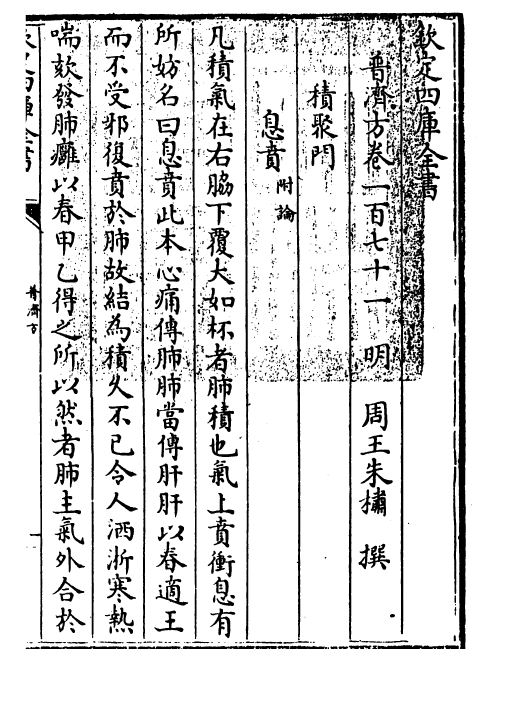 欽定四庫全書
普濟方卷一百七十一　明　周王朱橚　撰
積聚門
息賁附論
凡積氣在右脇下覆大如杯者肺積也氣上賁衝息有
所妨名曰息賁此本心痛傳肺肺當傳肝肝以春適王
而不受邪復賁於肺故結為積久不已令人洒淅寒熱
喘欬發肺癰以春甲乙得之所以然者肺主氣外合於
普濟方
一